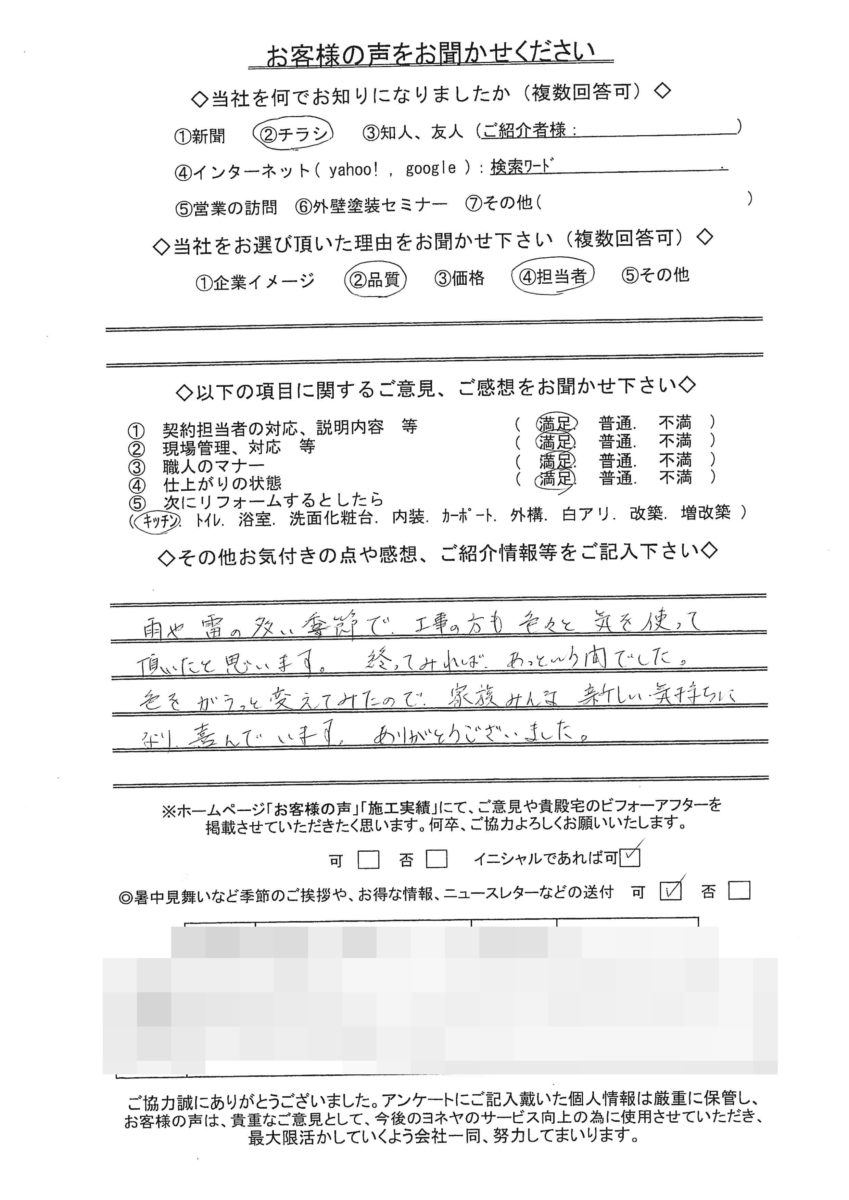 お客様の声をお聞かせください
◇当社を何でお知りになりましたか（複数回答可）◇
①新聞 ②チラシ ③知人、友人（ご紹介者様：　）
④インターネット( yahoo! , google )：検索ﾜｰﾄﾞ
⑤営業の訪問 ⑥外壁塗装セミナー ⑦その他(　)
◇当社をお選び頂いた理由をお聞かせ下さい（複数回答可）◇
①企業イメージ ②品質 ③価格 ④担当者 ⑤その他
◇以下の項目に関するご意見、ご感想をお聞かせ下さい◇
① 契約担当者の対応、説明内容 等 （ 満足. 普通. 不満 ）
② 現場管理、対応 等 （ 満足. 普通. 不満 ）
③ 職人のマナー （ 満足. 普通. 不満 ）
④ 仕上がりの状態 （ 満足. 普通. 不満 ）
⑤ 次にリフォームするとしたら
（ｷｯﾁﾝ. ﾄｲﾚ. 浴室. 洗面化粧台. 内装. ｶｰﾎﾟｰﾄ. 外構. 白アリ. 改築. 増改築 ）
◇その他お気付きの点や感想、ご紹介情報等をご記入下さい◇
雨や雷の多い季節で、工事の方も色々と気を使って
頂いたと思います。 終ってみれば、あっという間でした。
色をがらっと変えてみたので、家族みんな新しい気持ちに
なり、喜んでいます。 ありがとうございました。
※ホームページ｢お客様の声｣｢施工実績｣にて、ご意見や貴殿宅のビフォーアフターを
掲載させていただきたく思います。何卒、ご協力よろしくお願いいたします。
可 □ 否 □ イニシャルであれば可☑
◎暑中見舞いなど季節のご挨拶や、お得な情報、ニュースレターなどの送付 可 ☑ 否 □
ご協力誠にありがとうございました。アンケートにご記入戴いた個人情報は厳重に保管し、
お客様の声は、貴重なご意見として、今後のヨネヤのサービス向上の為に使用させていただき、
最大限活かしていくよう会社一同、努力してまいります。